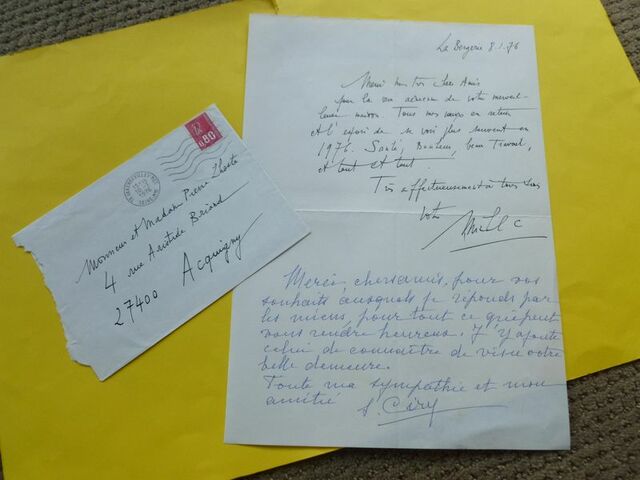 La Bergerie 8.1.76
Merci mes très chers Amis
pour la vue aérienne de votre merveil-
leuse maison. Tous mes voeux en retour
et l'espoir de se voir plus souvent en
1976. Santé, Bonheur, beau Travail,
et tout et tout.
Très affectueusement à tous deux
Votre
Merci, chers amis, pour vos
souhaits auxquels je réponds par
les miens, pour tout ce qui peut
vous rendre heureux. J'y ajoute
celui de connaître de visu votre
belle demeure.
Toute ma sympathie et mon
amitié
0.80
1976
Monsieur et Madame Pierre
4 rue Aristide Briand
Acquigny
27400